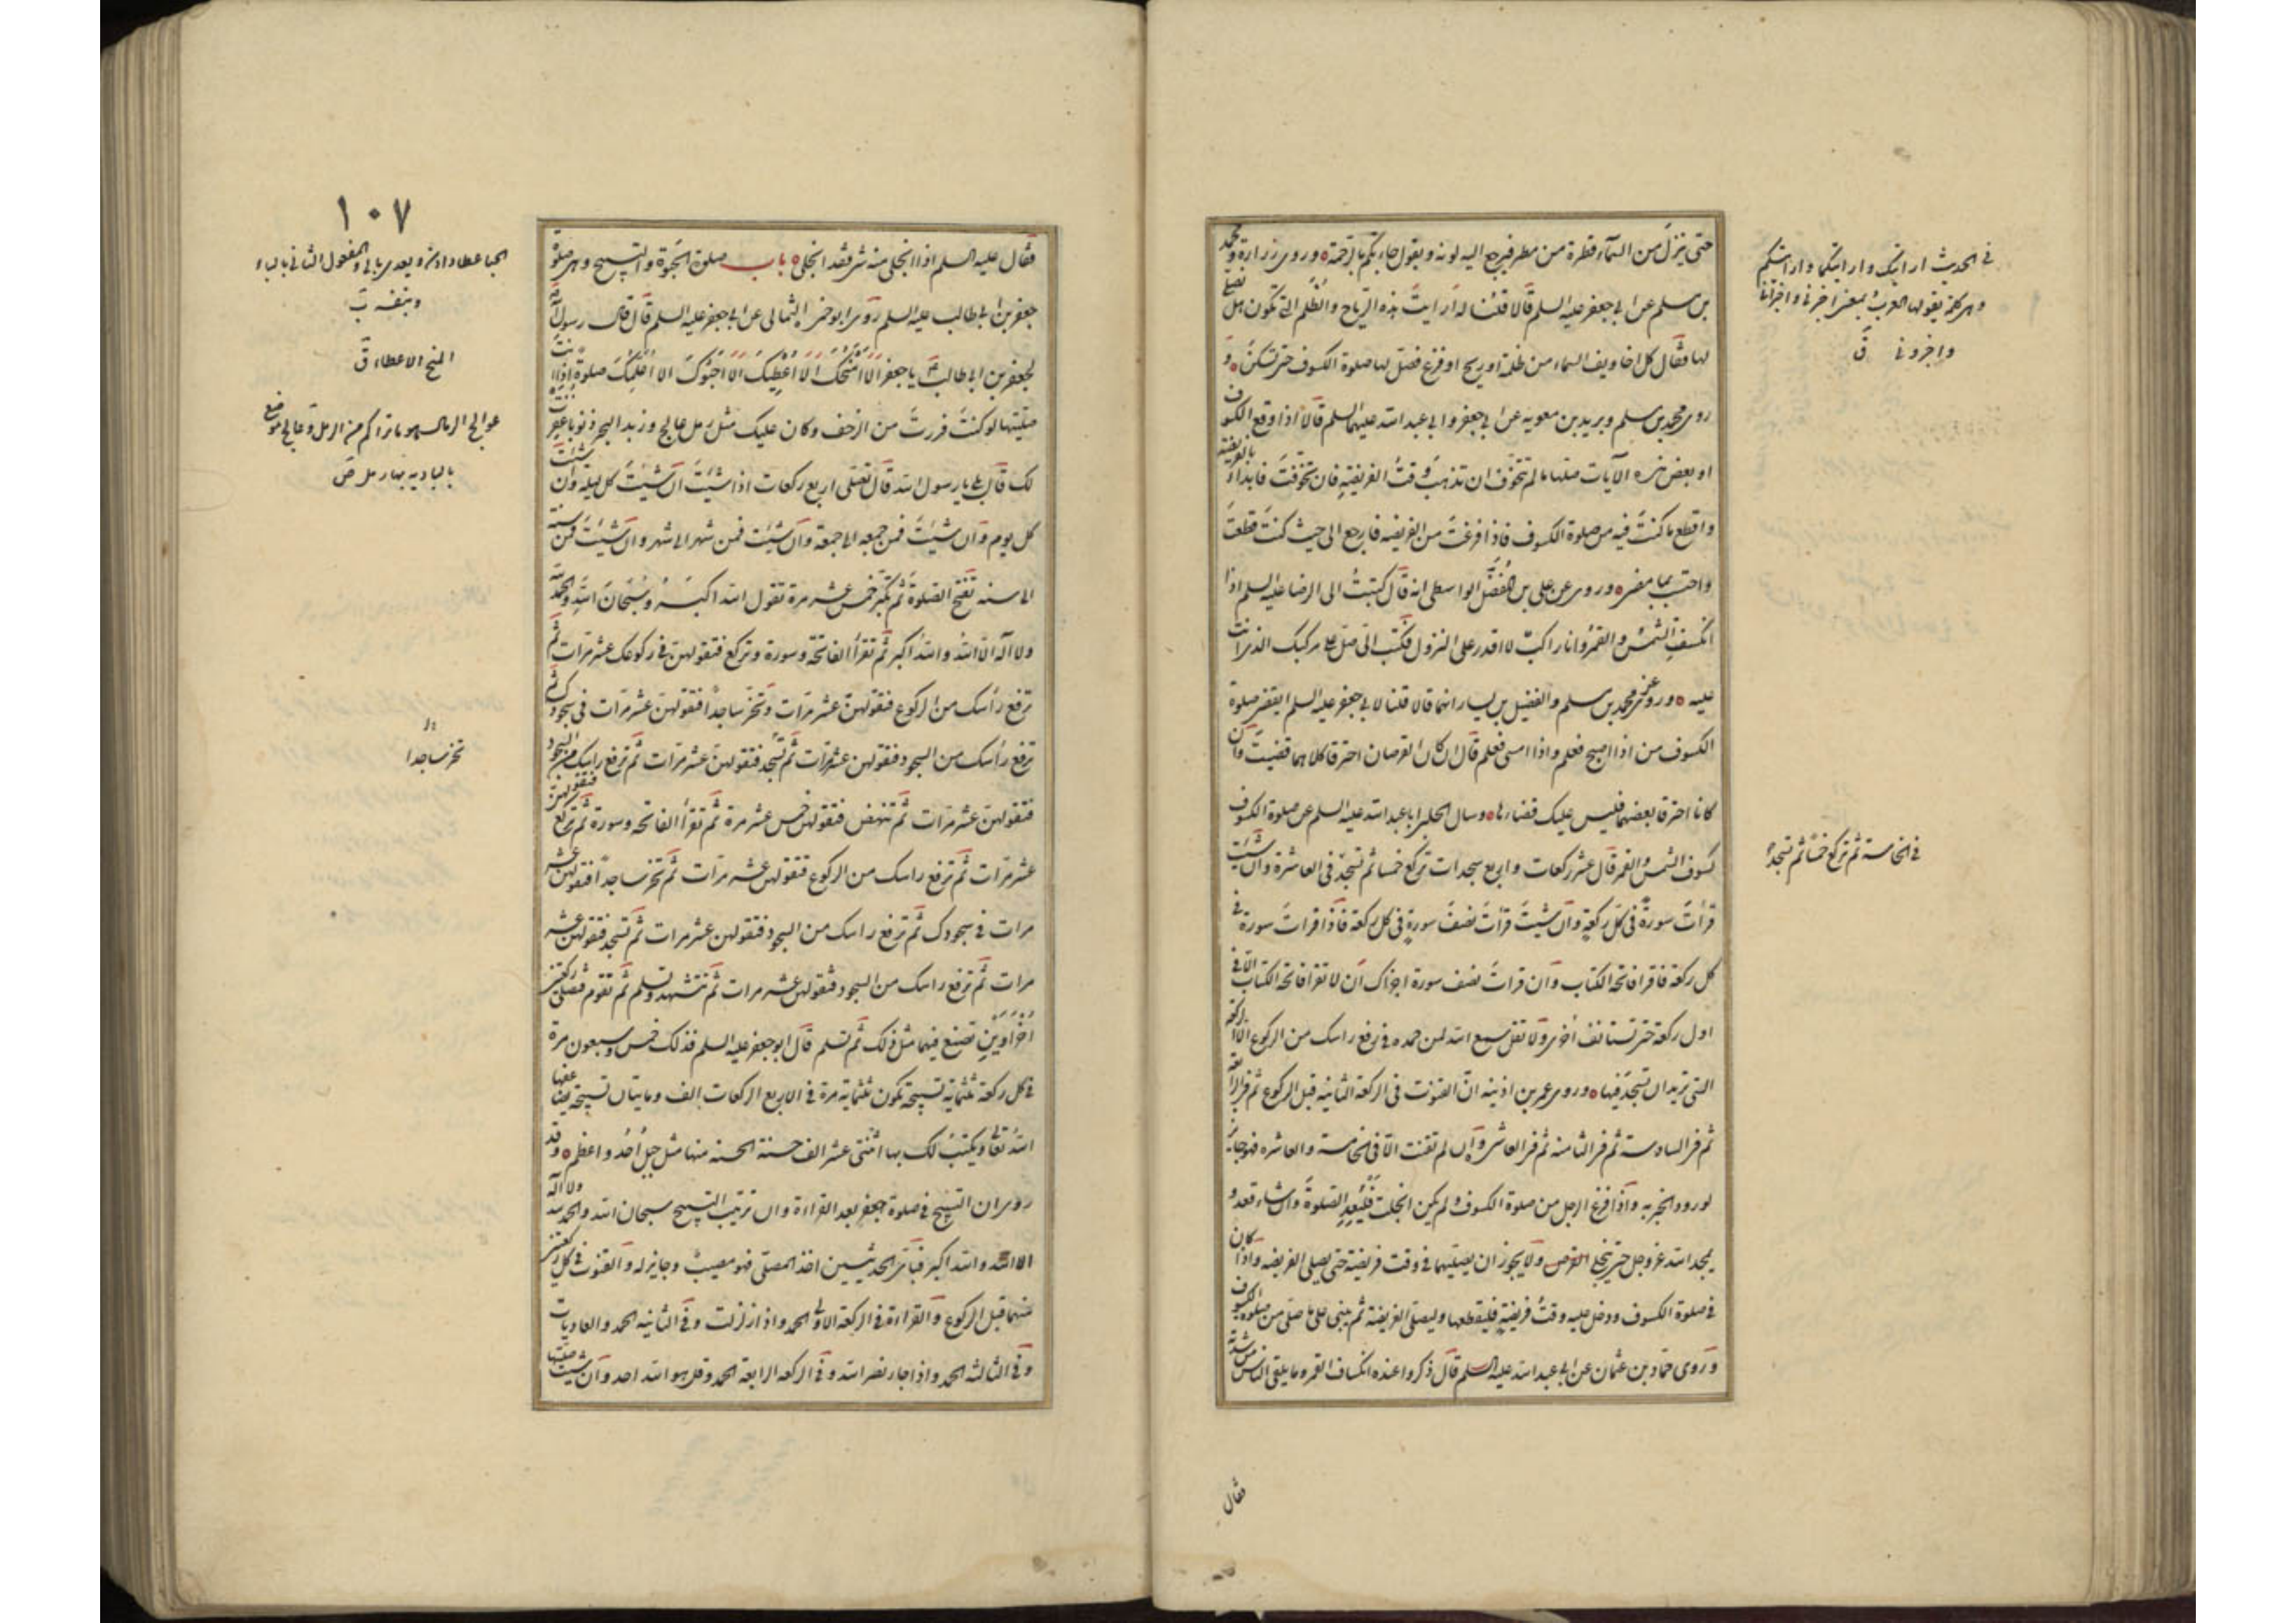 حتى ينزل من السمآء قطرة من مطر فيرجع اليه لونه ويقول جاءتكم بالرحمة وروى زرارة ومحمد
بن مسلم عن ابي جعفر عليه السلم قالا قلنا له ارايت هذه الرياح والظلم التى تكون هل نصلى
لها فقال كل اخاويف السماء من ظلمة او ريح او فزع فصل لها صلوة الكسوف حتى تسكن و
روى محمد بن مسلم وبريد بن معوية عن ابي جعفر وابي عبد الله عليهما السلم قالا اذا وقع الكسوف
او بعض هذه الآيات صلها ما لم تتخوف ان تذهب وقت الفريضة فان تخوفت فابدا بالفريضة
واقطع ما كنت فيه من صلوة الكسوف فاذا فرغت من الفريضه فارجع الى حيث كنت قطعت
واحتسب بما مضى وروى عن على بن الفضل الواسطى انه قال كتبت الى الرضا عليه السلم اذا
انكسفت الشمس والقمر وانا راكب لا اقدر على النزول فكتب الى صل على مركبك الذى انت
عليه وروى عن محمد بن مسلم والفضيل بن يسار انهما قالا قلنا لابي جعفر عليه السلم ايقضى صلوة
الكسوف من اذا اصبح فعلم واذا امسى فعلم قال ان كان القرصان احترقا كلاهما قضيت وان
كانا احترقا بعضهما فليس عليك قضاءها وسال الحلبى ابا عبد الله عليه السلم عن صلوة الكسوف
كسوف الشمس والقمر قال عشر ركعات واربع سجدات تركع خمسا ثم تسجد فى العاشرة وان شئت
قرات سورة فى كل ركعة وان شئت قرات نصف سورة فى كل ركعة فاذا قرات سورة فى
كل ركعة فاقرا فاتحة الكتاب وان قرات نصف سورة اجزاك ان لا تقرا فاتحة الكتاب الا فى
اول ركعة حتى تستانف اخرى ولا تقل سمع الله لمن حمده فى رفع راسك من الركوع الا الركعة
التى تريد ان تسجد فيها وروى عمر بن اذينه ان القنوت فى الركعة الثانية قبل الركوع ثم فى الرابعة
ثم فى السادسة ثم فى الثامنه ثم فى العاشر وان لم تقنت الا فى الخامسة والعاشره فهو جايز
لورود الخبر به واذا فرغ الرجل من صلوة الكسوف ولم يكن انجلت فليعد الصلوة وان شاء قعد و
يمجد الله عز وجل حتى ينجلى القرص ولا يجوز ان يصليهما فى وقت فريضة حتى يصلى الفريضه واذا كان
فى صلوة الكسوف ودخل عليه وقت فريضة فليقطعها وليصل الفريضة ثم يبنى على ما صلى من صلوة الكسوف
وروى حماد بن عثمان عن ابي عبد الله عليه السلم قال ذكروا عنده انكساف القمر وما يلقى الناس من شدته
فقال
فى الحديث ارايتك وارايتكما وارايتكم
وهى كلمة يقولها العرب بمعنى اخبرنى واخبرانى
واخبرونى ق
فى الخامسة ثم تركع خمسا ثم تسجد
١٠٧
فقال عليه السلم اذا انجلى منه شئ فقد انجلى باب صلوة الحبوة والتسبيح وهى صلوة
جعفر بن ابي طالب عليه السلم روى ابو حمزة الثمالى عن ابي جعفر عليه السلم قال قال رسول الله
لجعفر بن ابي طالب يا جعفر الا امنحك الا اعطيك الا احبوك الا اعلمك صلوة اذا انت
صليتها لو كنت فررت من الزحف وكان عليك مثل رمل عالج وزبد البحر ذنوبا غفرت
لك قال بلى يا رسول الله قال تصلى اربع ركعات اذا شئت ان شئت كل ليلة وان شئت
كل يوم وان شئت فمن جمعه الى جمعة وان شئت فمن شهر الى شهر وان شئت فمن سنة
الى سنه تفتتح الصلوة ثم تكبر خمس عشره مرة تقول الله اكبر وسبحان الله والحمد لله
ولا اله الا الله والله اكبر ثم تقرا الفاتحة وسورة وتركع فتقولهن فى ركوعك عشر مرات ثم
ترفع راسك من الركوع فتقولهن عشر مرات وتخر ساجدا فتقولهن عشر مرات فى سجودك ثم
ترفع راسك من السجود فتقولهن عشر مرات ثم تسجد فتقولهن عشر مرات ثم ترفع راسك من السجود
فتقولهن عشر مرات ثم تنهض فتقولهن خمس عشر مرة ثم تقرا الفاتحه وسورة ثم تركع فتقولهن
عشر مرات ثم ترفع راسك من الركوع فتقولهن عشر مرات ثم تخر ساجدا فتقولهن عشر
مرات فى سجودك ثم ترفع راسك من السجود فتقولهن عشر مرات ثم تسجد فتقولهن عشر
مرات ثم ترفع راسك من السجود فتقولهن عشر مرات ثم تتشهد وتسلم ثم تقوم فتصلى ركعتين
اخراوين تصنع فيهما مثل ذلك ثم تسلم قال ابو جعفر عليه السلم فذلك خمس وسبعون مرة
فى كل ركعة ثلثماية تسبيحة تكون ثلثماية مرة فى الاربع الركعات الف ومايتان تسبيحة يضاعفها
الله تعالى ويكتب لك بها اثنتى عشر الف حسنة الحسنه منها مثل جبل احد واعظم وقد
روى ان التسبيح فى صلوة جعفر بعد القراءة وان ترتيب التسبيح سبحان الله والحمد لله ولا اله
الا الله والله اكبر فباى الحديثين اخذ المصلى فهو مصيب وجايز له والقنوت فى كل ركعتين
منهما قبل الركوع والقراءة فى الركعة الاولى الحمد واذا زلزلت وفى الثانيه الحمد والعاديات
وفى الثالثه الحمد واذا جاء نصر الله وفى الركعه الرابعة الحمد وقل هو الله احد وان شئت صليتها
وبنفسه ب
المنح الاعطاء ق
عوالج الرمال هو ما تراكم من الرمل وعالج موضع
بالباديه بها رمل ص
تخر ساجدا